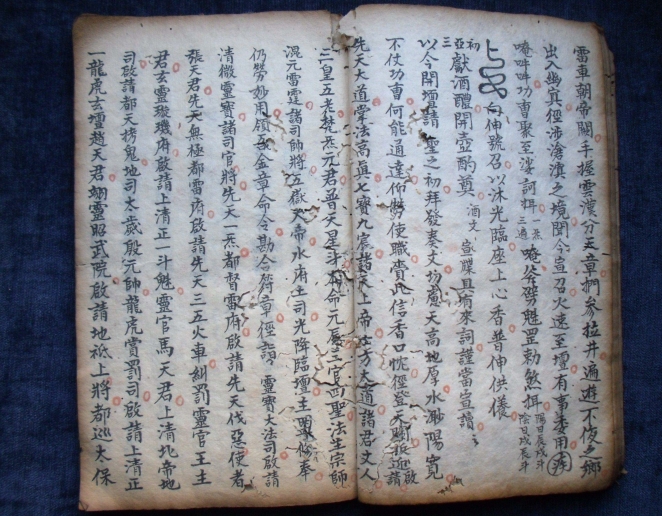 雷車朝帝闕手握雲漢分五章捫參拉井遍遊不復之鄉
出入幽冥徑涉滄溟之境聞今宣召火速至壇有事委用
唵吽吽功曹聚至娑訶
向伸號召以沐光臨座上心香普伸供儀
初亞三獻酒醴開壺酌奠 酒文 宣牒具有來詞謹當宣讀
以今開壇請聖之初拜發奏文切慮天高地厚水渺陽寬
不仗功曹何能通達仰勞使職賫此信香口
先天大道掌法高真七寶九宸諸天上帝十方大道諸君丈人
三皇五老梵炁元君普天星斗府命元辰三官四聖法主宗師
混元雷霆諸司帥將五嶽大帝水府土司光降臨壇主盟修奉
仍勞妙用金章命令勘合符章徑詣靈寶大法司啟請
清微靈寶諸司官將先天一炁都督雷府啟請先天伐惡使者
張天君先天無極都雷府啟請先天三五火車糾罰靈官王主
君玄靈璇璣府啟請上清正一斗魁靈官馬天君上清北帝地
司啟請都天榜鬼地司太歲殷元帥龍虎賞罰司啟請上清正
一龍虎玄壇趙天君翊靈昭武院啟請地祇上將都巡太保